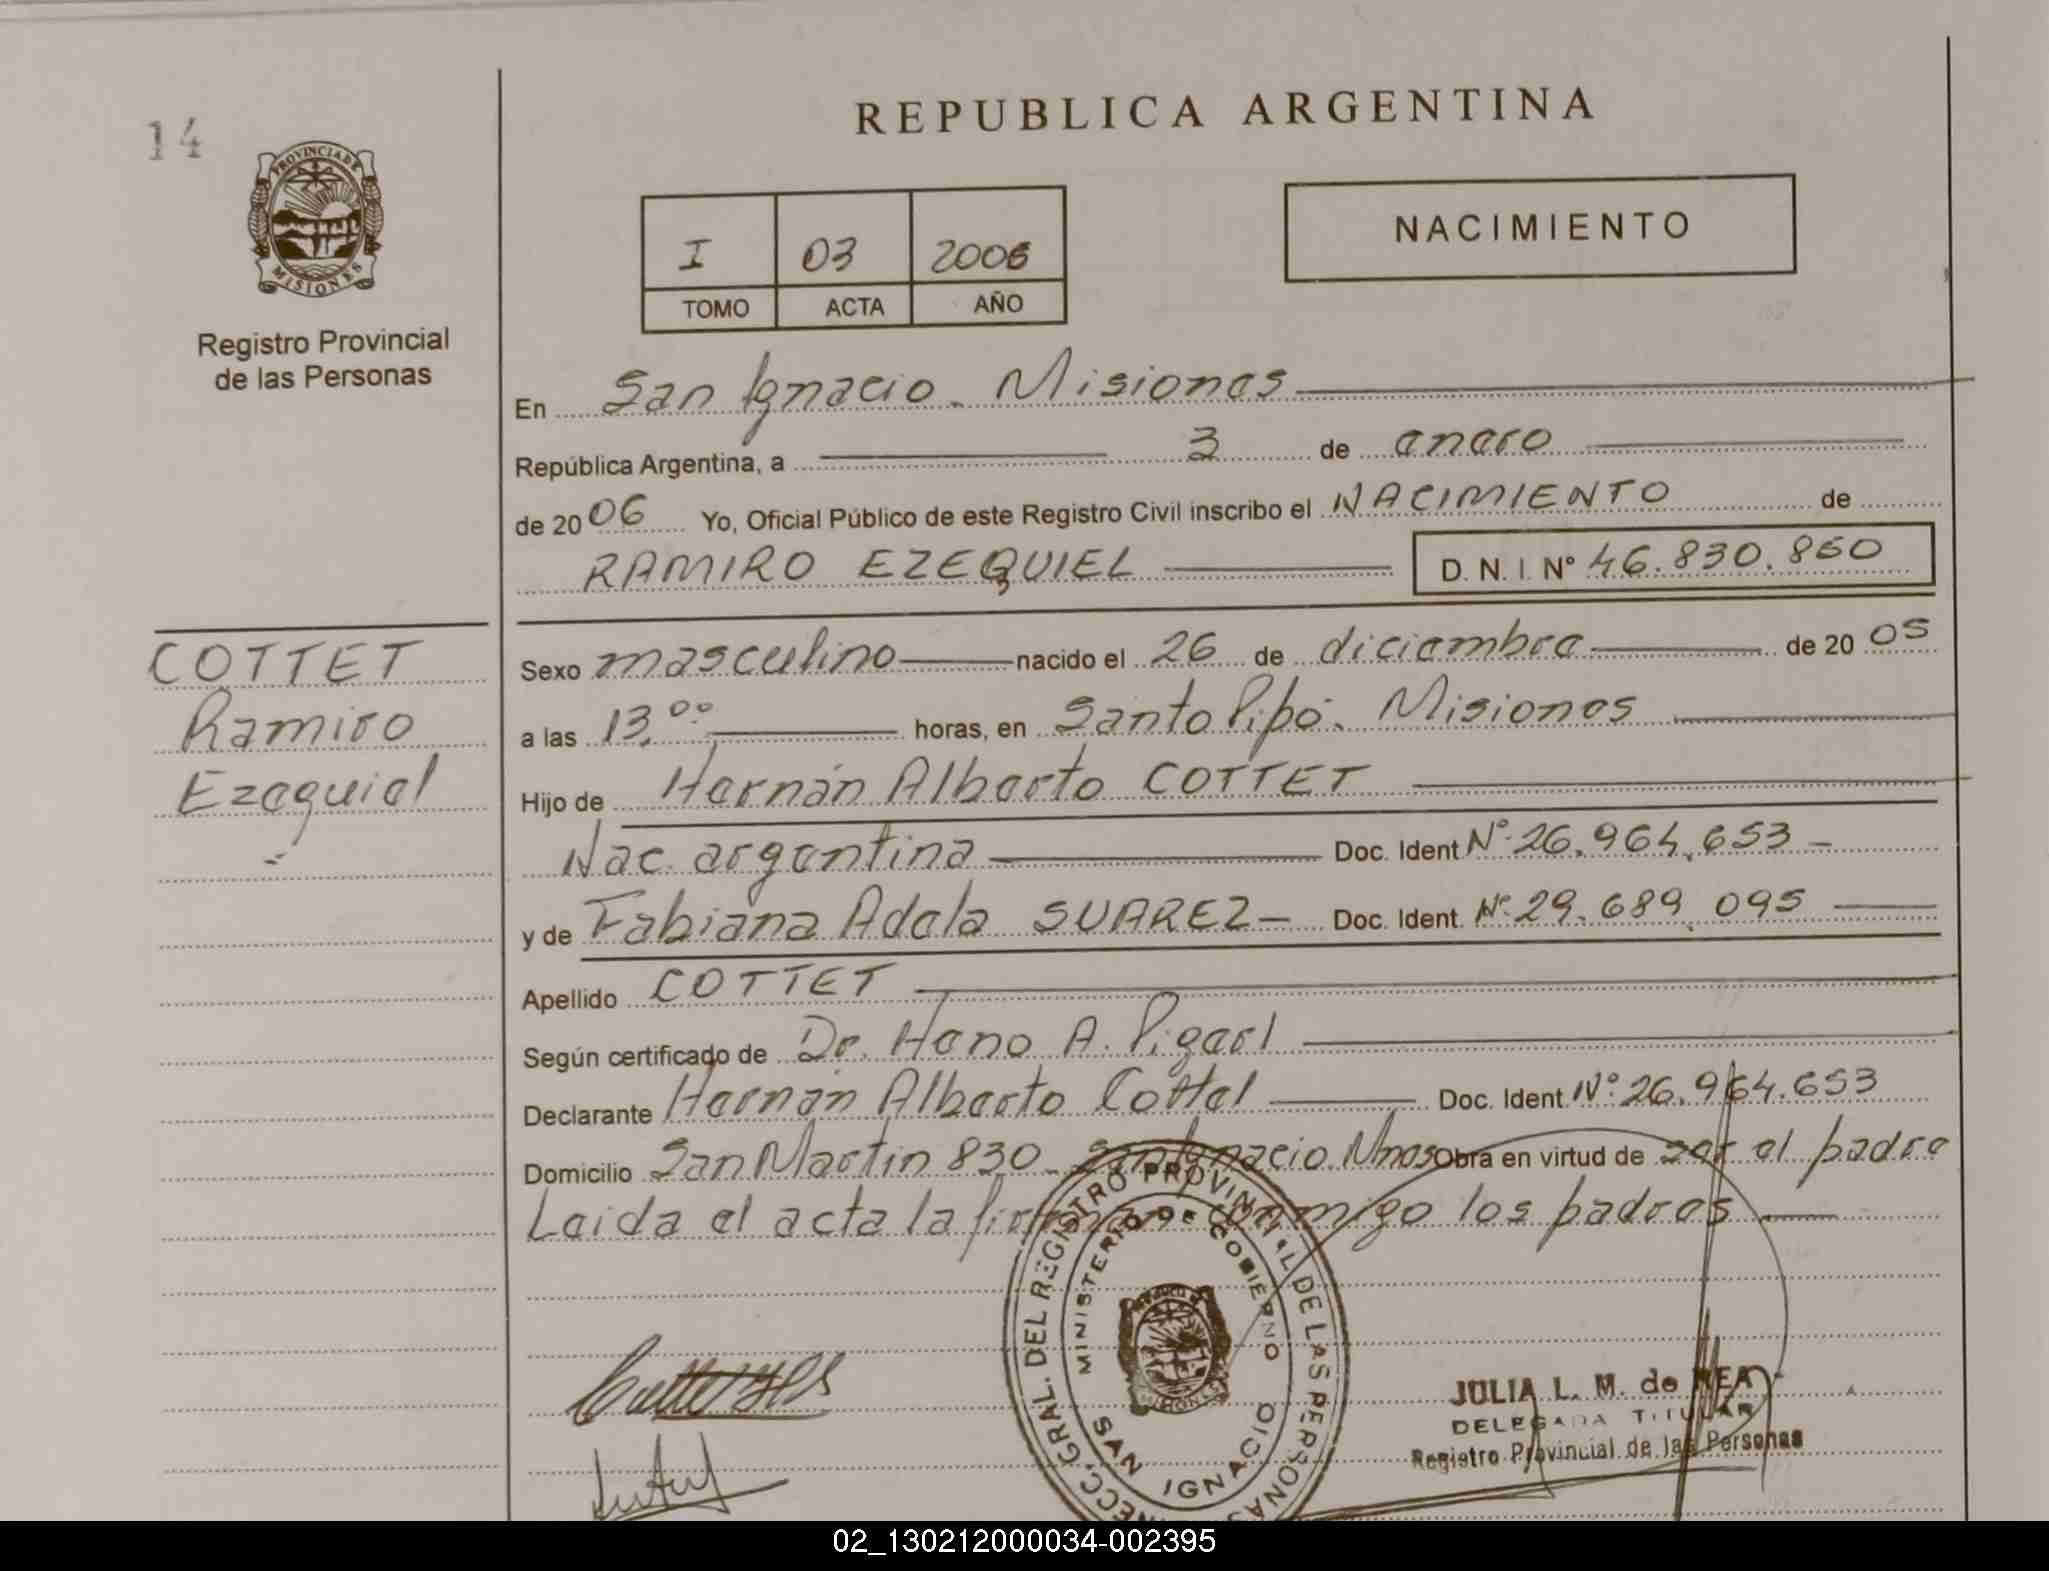 14
REPUBLICA ARGENTINA
PROVINCIA DE
MISIONES
Registro Provincial
de las Personas
I 03 2006
TOMO ACTA AÑO
NACIMIENTO
En San Ignacio. Misiones
República Argentina, a 3 de enero
de 2006 Yo, Oficial Público de este Registro Civil inscribo el NACIMIENTO de
RAMIRO EZEQUIEL D. N. I. N° 46.830.860
COTTET
Ramiro
Ezequiel
Sexo masculino nacido el 26 de diciembre de 2005
a las 13,00 horas, en Santo Pipó. Misiones
Hijo de Hernán Alberto COTTET
Nac. argentina Doc. Ident N° 26.964.653
y de Fabiana Adela SUAREZ Doc. Ident. N° 29.689.095
Apellido COTTET
Según certificado de Dr. Heno A. Pigerl
Declarante Hernán Alberto Cottet Doc. Ident. N° 26.964.653
Domicilio San Martin 830. San Ignacio Mnes Obra en virtud de ser el padre
Leida el acta la firman conmigo los padres
DIRECC. GRAL. DEL REGISTRO PROVINCIAL DE LAS PERSONAS
MINISTERIO DE GOBIERNO
SAN IGNACIO
JULIA L. M. de REA
DELEGADA TITULAR
Registro Provincial de las Personas
02_130212000034-002395